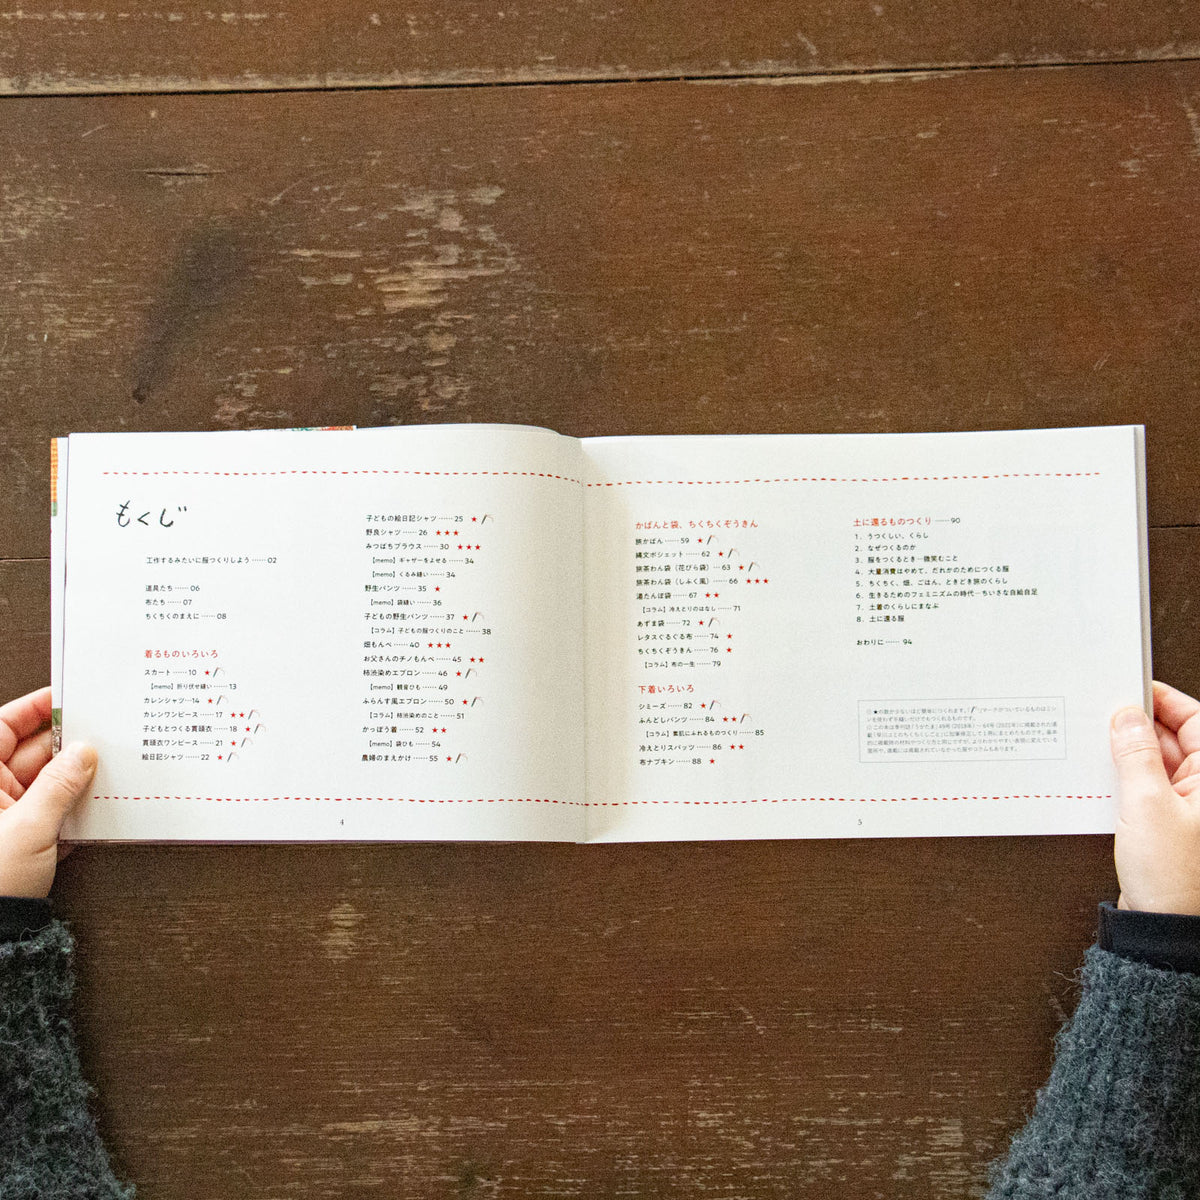 もくじ
工作するみたいに服つくりしよう……02
道具たち……06
布たち……07
ちくちくのまえに……08
着るものいろいろ
スカート……10 ★
【memo】折り伏せ縫い……13
カレンシャツ…14 ★
カレンワンピース……17 ★★
子どもとつくる貫頭衣……18 ★
貫頭衣ワンピース……21 ★
絵日記シャツ……22 ★
子どもの絵日記シャツ……25 ★
野良シャツ……26 ★★★
みつばちブラウス……30 ★★★
【memo】ギャザーをよせる……34
【memo】くるみ縫い……34
野生パンツ……35 ★
【memo】袋縫い……36
子どもの野生パンツ……37 ★
【コラム】子どもの服つくりのこと……38
畑もんぺ……40 ★★★
お父さんのチノもんぺ……45 ★★
柿渋染めエプロン……46 ★
【memo】観音ひも……49
ふらんす風エプロン……50 ★
【コラム】柿渋染めのこと……51
かっぽう着……52 ★★
【memo】袋ひも……54
農婦のまえかけ……55 ★
4
かばんと袋、ちくちくぞうきん
旅かばん……59 ★
縄文ポシェット……62 ★
旅茶わん袋（花びら袋）…63 ★
旅茶わん袋（しふく風）……66 ★★★
湯たんぽ袋……67 ★★
【コラム】冷えとりのはなし……71
あずま袋……72 ★
レタスぐるぐる布……74 ★
ちくちくぞうきん……76 ★
【コラム】布の一生……79
下着いろいろ
シミーズ……82 ★
ふんどしパンツ……84 ★★
【コラム】素肌にふれるものつくり……85
冷えとりスパッツ……86 ★★
布ナプキン……88 ★
土に還るものつくり……90
1. うつくしい、くらし
2. なぜつくるのか
3. 服をつくるとき―微笑むこと
4. 大量消費はやめて、だれかのためにつくる服
5. ちくちく、畑、ごはん、ときどき旅のくらし
6. 生きるためのフェミニズムの時代―ちいさな自給自足
7. 土着のくらしにまなぶ
8. 土に還る服
おわりに……94
5